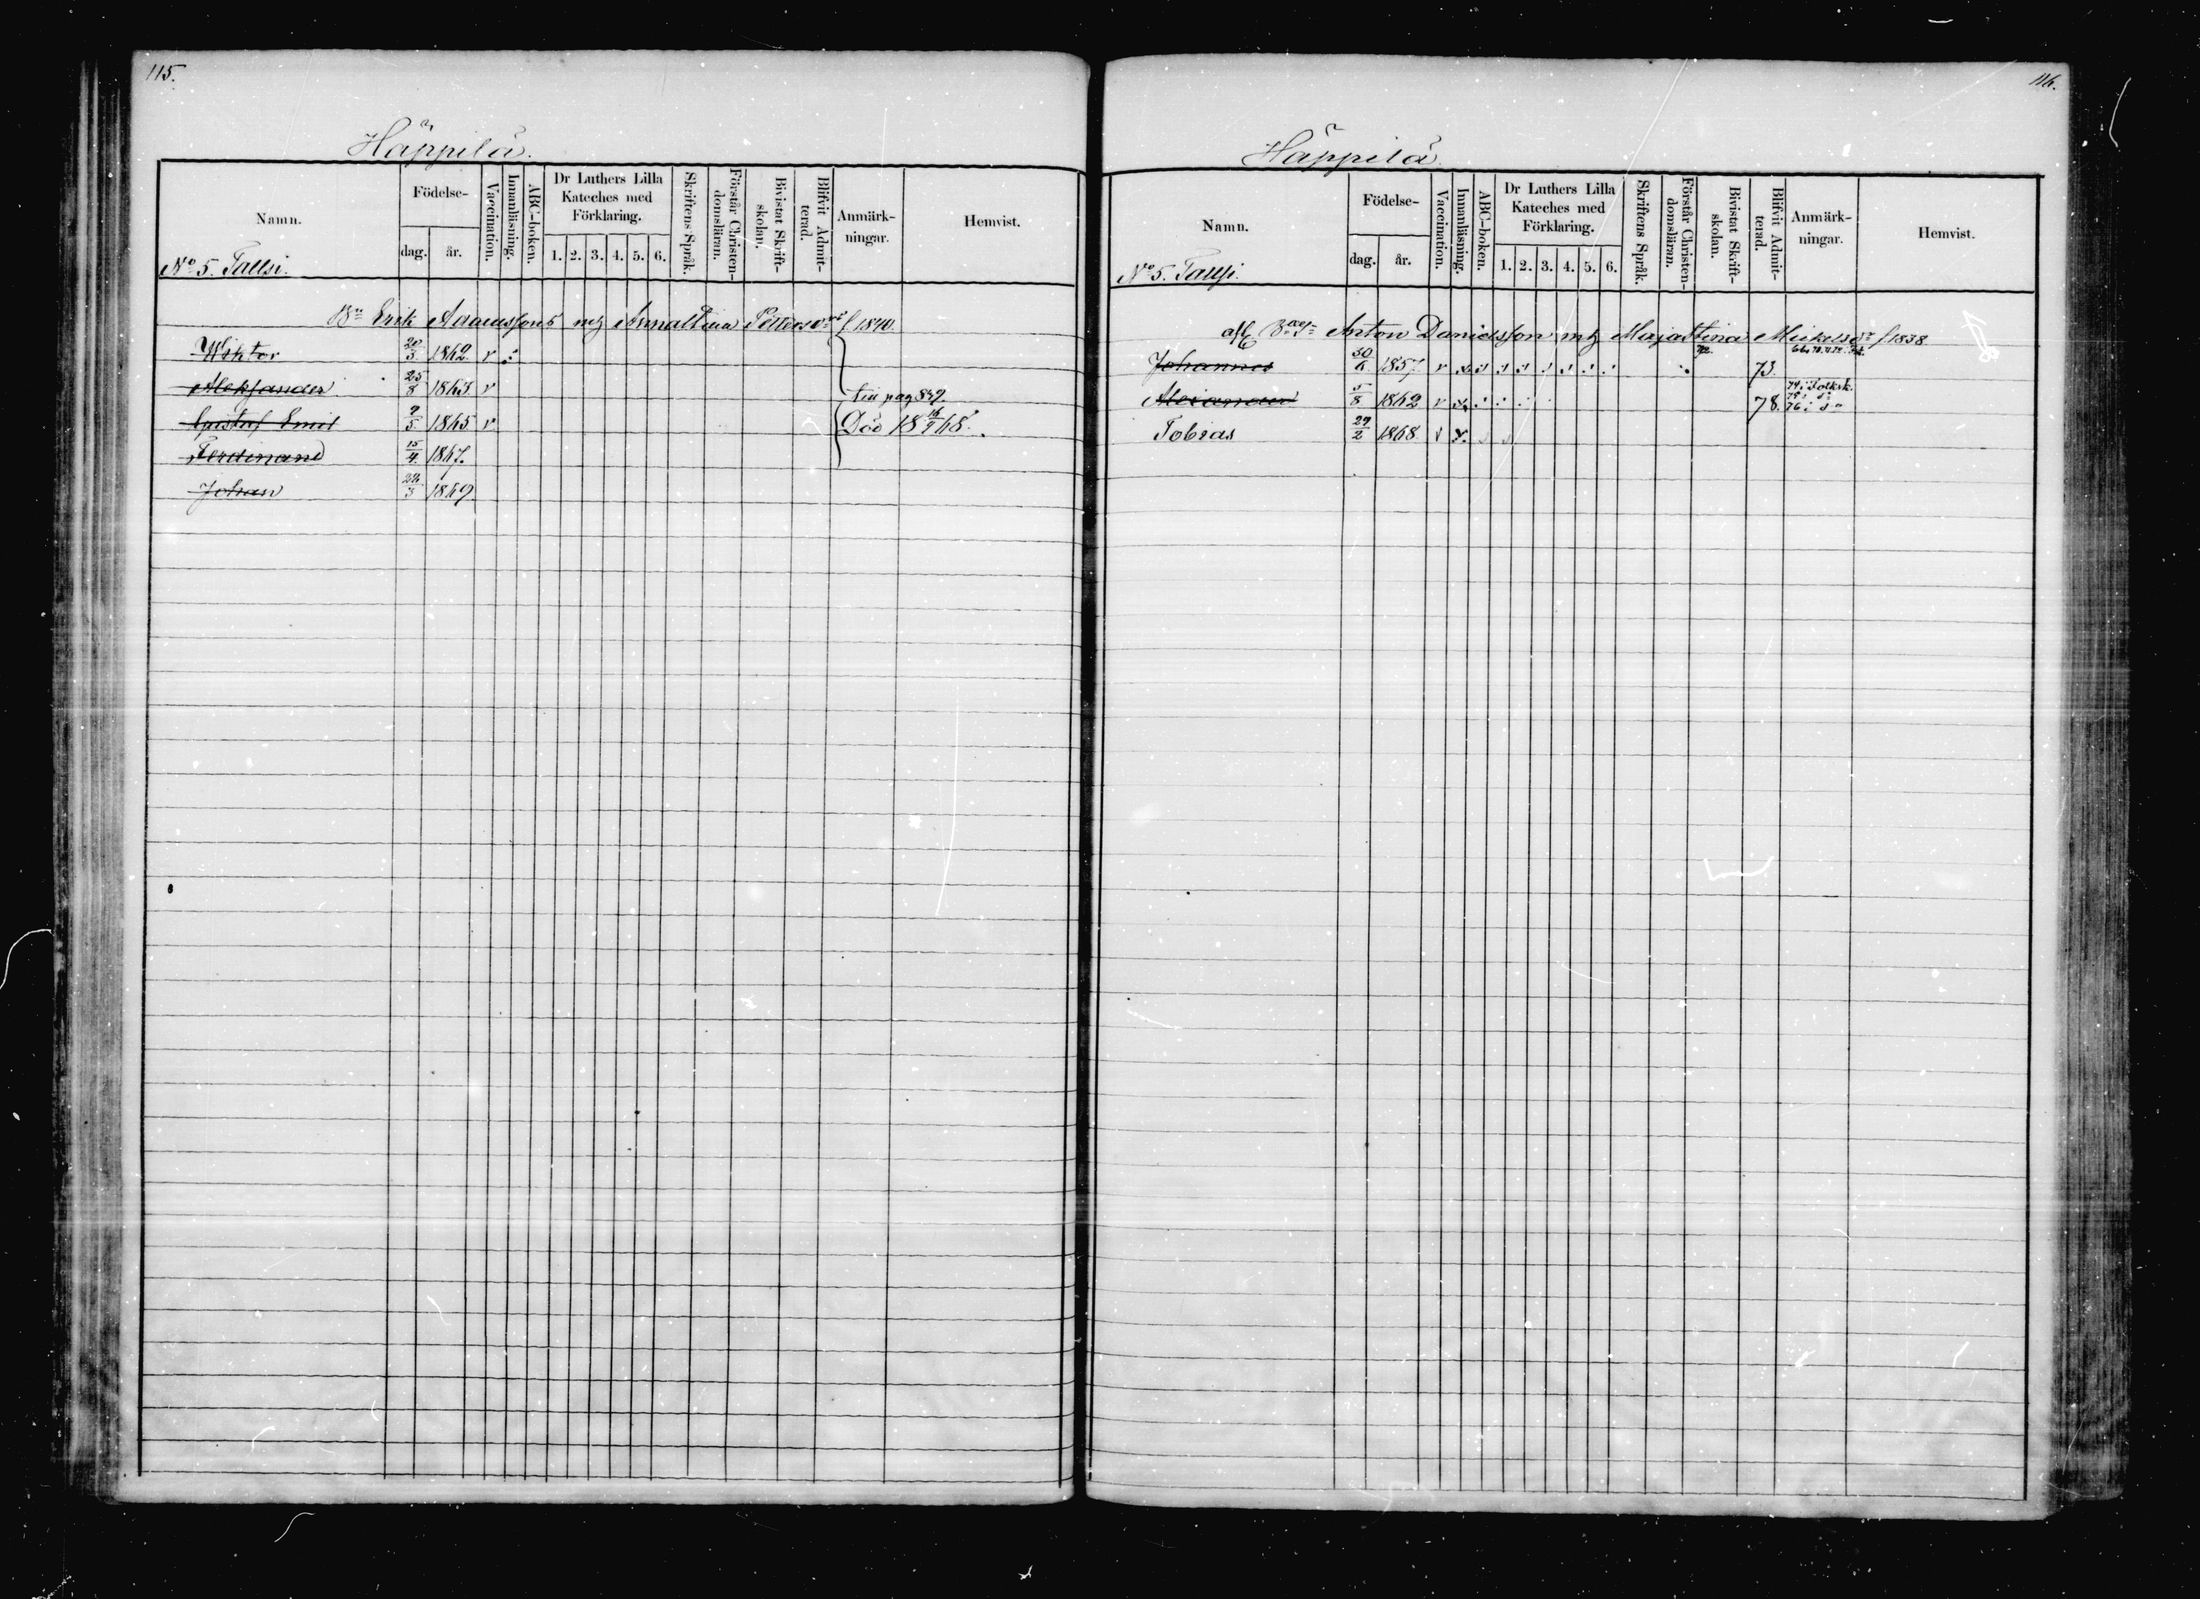 115.
Häppilä.
Namn.
Födelse-
dag.
år.
Vaccination.
Innanläsning.
ABC-boken.
Dr Luthers Lilla
Kateches med
Förklaring.
1. 2. 3. 4. 5. 6.
Skriftens Språk.
Förstår Christen-
domsläran.
Bivistat Skrift-
skolan.
Blifvit Admit-
terad.
Anmärk-
ningar.
Hemvist.
No 5. Tallsi.
Bn Erik Adamssons m/ Annastina f 1840.
Wiktor 20/3 1862. v
Aleksander 25/8 1863. v till pag 842.
Gustaf Emil 9/5 1865 v Död 18 16/2 68.
Ferdinand 15/4 1867.
Johan 22/3 1869
116.
Häppilä.
Namn.
Födelse-
dag.
år.
Vaccination.
Innanläsning.
ABC-boken.
Dr Luthers Lilla
Kateches med
Förklaring.
1. 2. 3. 4. 5. 6.
Skriftens Språk.
Förstår Christen-
domsläran.
Bivistat Skrift-
skolan.
Blifvit Admit-
terad.
Anmärk-
ningar.
Hemvist.
No 5. Tallsi.
Anton Danielsson m/ Majastina f 1838
Johannes 30/6 1857. v 72. 73.
Alexander 5/8 1862 v 78.
Tobias 29/2 1868 v